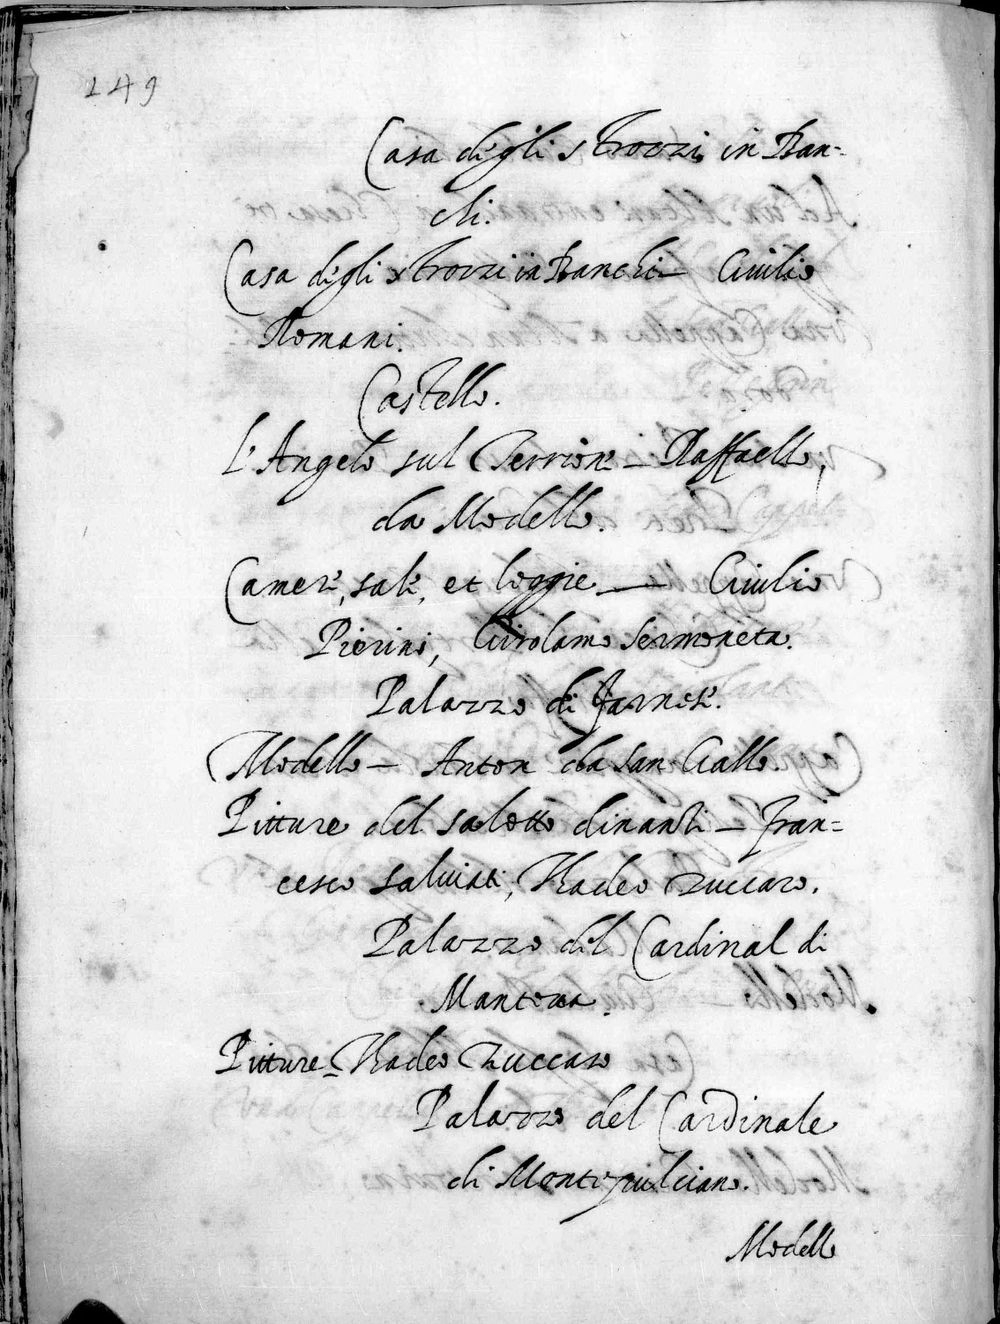 149
Casa degli strozzi in Ban=
chi.
Casa degli strozzi in Banchi — Giulio
Romani.
Castello.
L'Angelo sul Terrione — Raffaello,
da Modello.
Camere, sale, et loggie — Giulio
Pierino, Girolamo Sermoneta.
Palazzo di Farnese.
Modello — Anton da San Gallo.
Pitture del salotto dinanti — Fran=
cesco Salviati, Thadeo Zuccaro.
Palazzo del Cardinal di
Mantova.
Pitture — Thadeo Zuccaro
Palazzo del Cardinale
di Montepulciano.
Modello